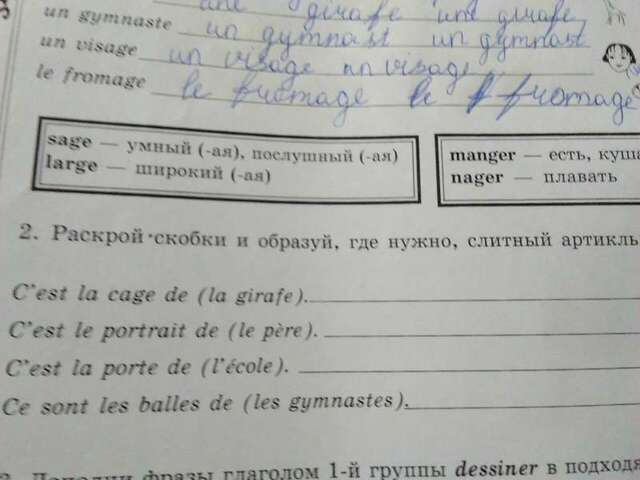 une girafe une girafe
un gymnaste un gymnast un gymnast
un visage un visage un visage
le fromage le fromage le fromage
sage — умный (-ая), послушный (-ая)
large — широкий (-ая)
manger — есть, куша
nager — плавать
2. Раскрой скобки и образуй, где нужно, слитный артикль
C'est la cage de (la girafe).
C'est le portrait de (le père).
C'est la porte de (l'école).
Ce sont les balles de (les gymnastes).
3. Дополни фразы глаголом 1-й группы dessiner в подходя